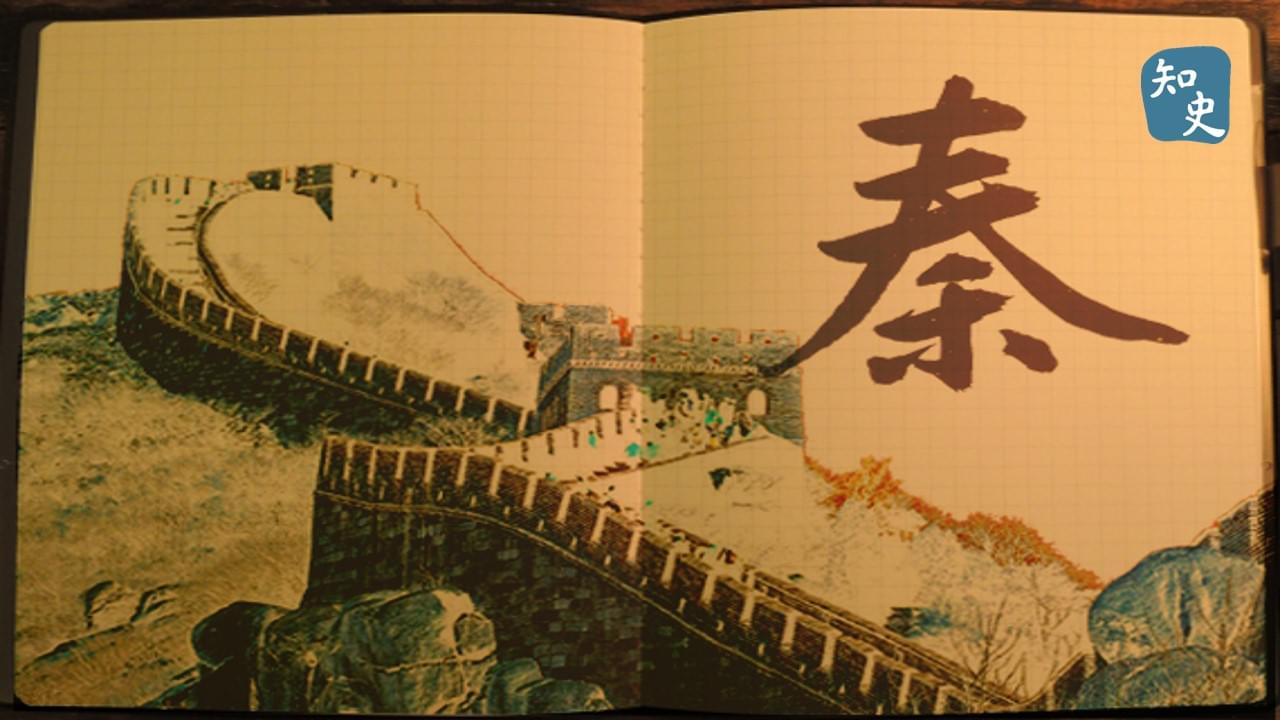 秦
知
史